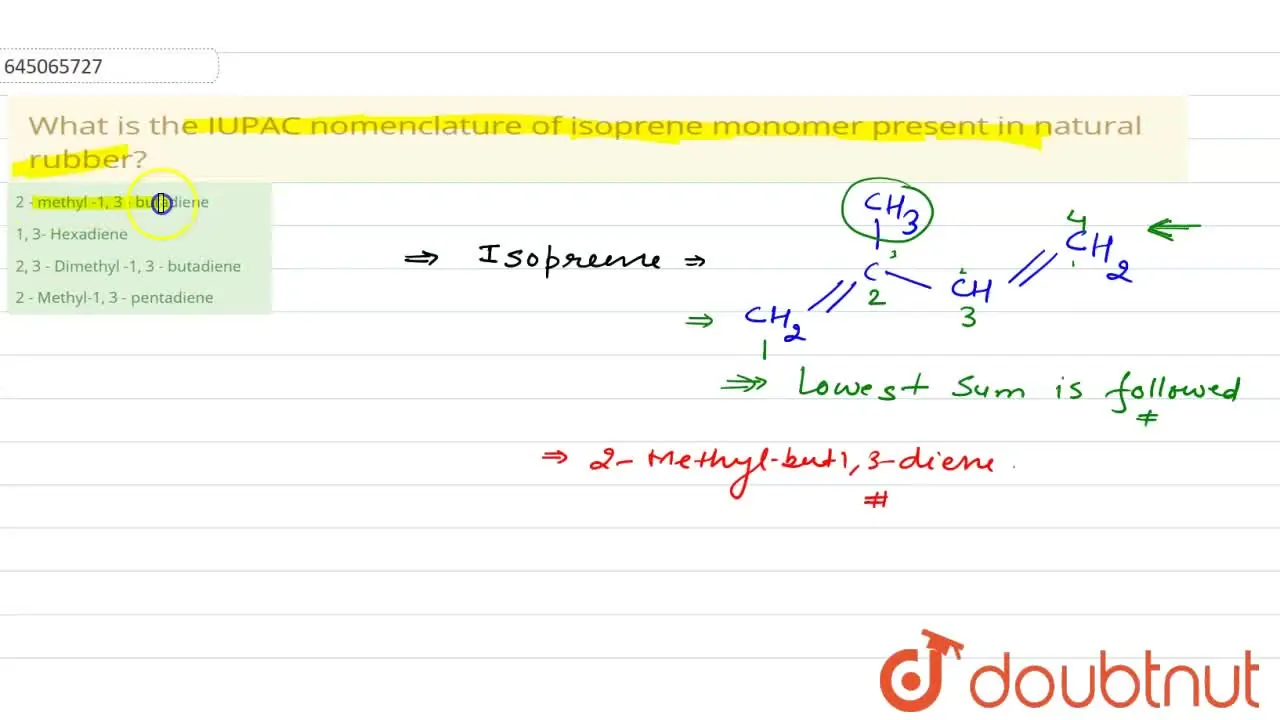 645065727
What is the IUPAC nomenclature of isoprene monomer present in natural
rubber?
2 - methyl -1, 3 - butadiene
1, 3- Hexadiene
2, 3 - Dimethyl -1, 3 - butadiene
2 - Methyl-1, 3 - pentadiene
⇒ Isoprene ⇒
CH3
4
3
2
CH2
1
C
CH
2
3
⇒ CH2
1
⇒ Lowest sum is followed
#
⇒ 2- Methyl-but1, 3-diene
#
doubtnut